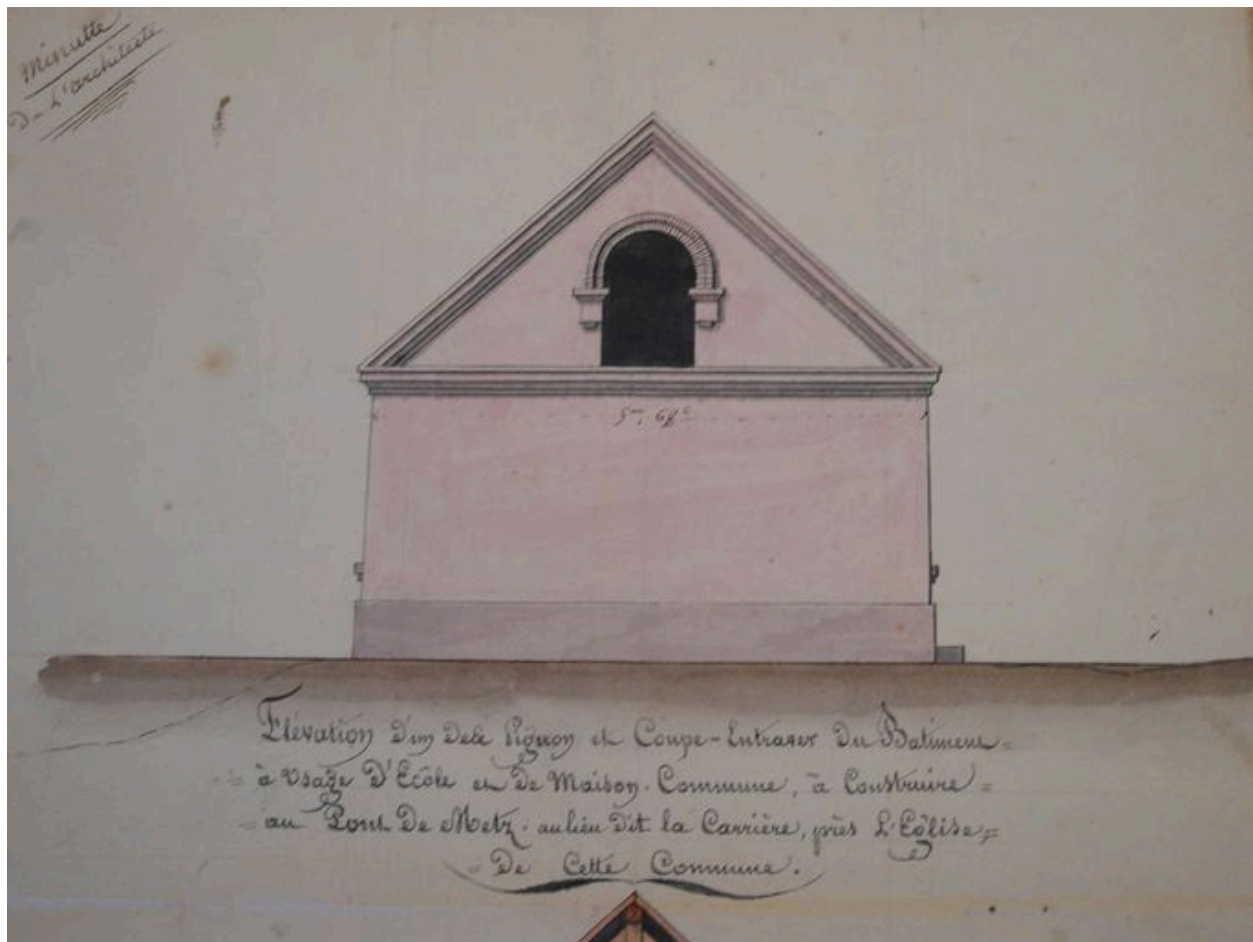 Minutte
De L'architecte
5m, 68c
Elévation D'un Pignon et Coupe-Entraver Du Batiment
à Usage D'Ecôle et De Maison-Commune, à Construire
au Pont De Metz. au lieu Dit la Carrière, près L'Eglise,
De Cette Commune.